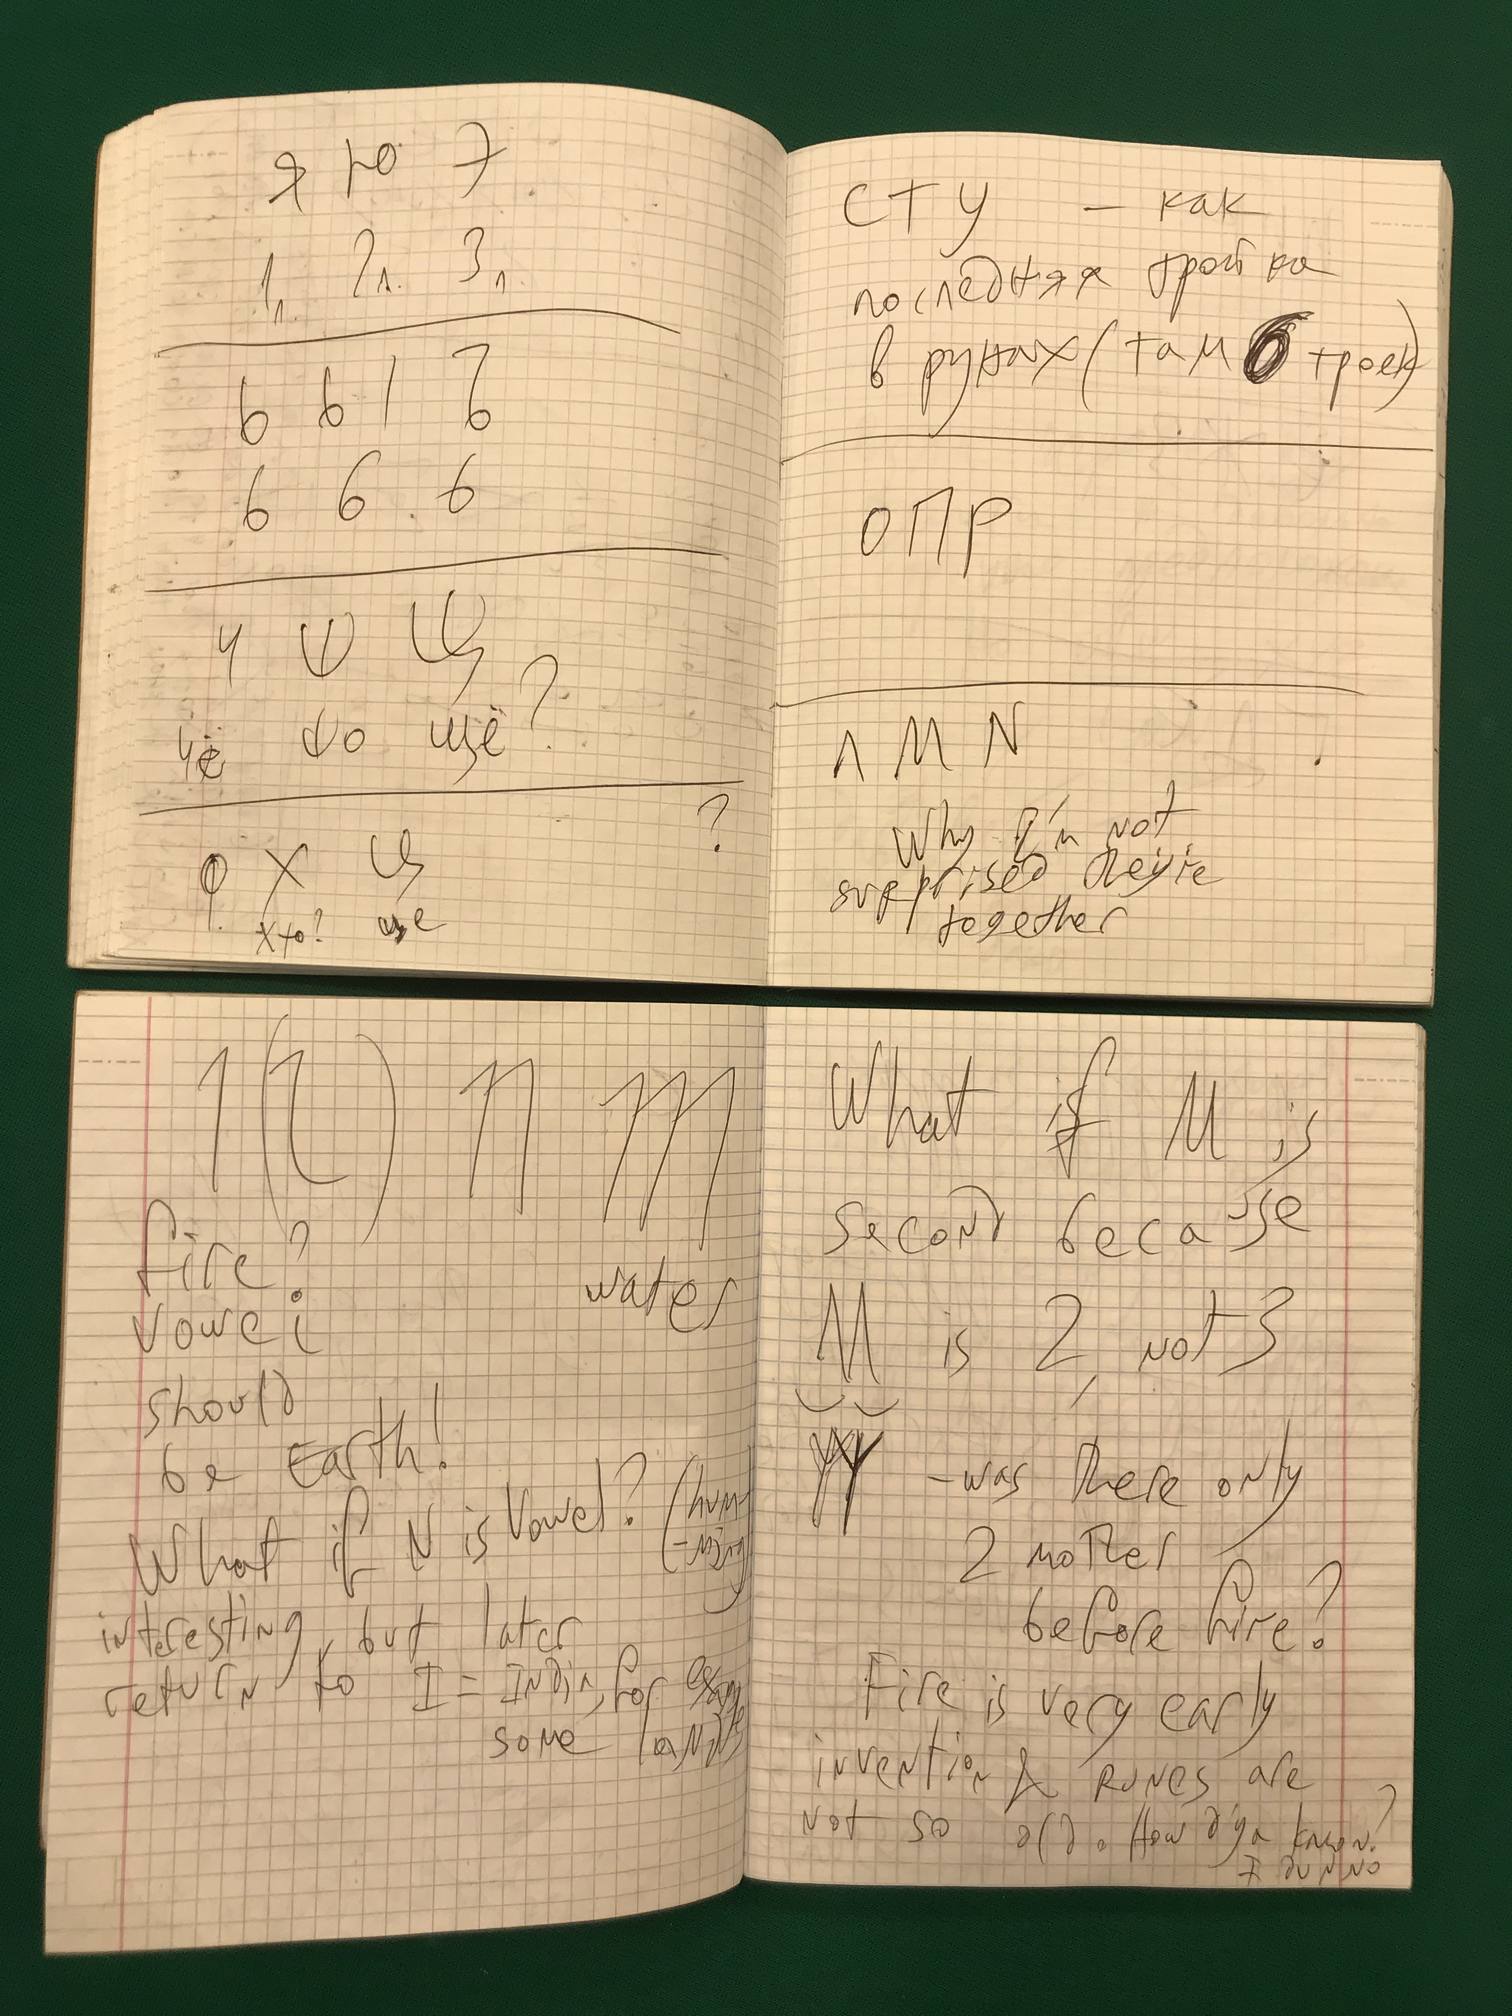 я ю э
1л 2л. 3л
ь ы ъ
ь ь ъ
ч ш щ
чё шо щё?
ф х ц ?
хто? це
СТУ – как
последняя тройка
в рунах (там 6 троек)
ОПР
Л М N
Why I'm not
surprised they're
together
1 (l) n m
fire? water
vowel
should
be Earth!
What if N is vowel? (hum-
-ming)
interesting, but later
return to I = INDIN, for example
some
What if M is
second because
M is 2, not 3
– was there only
2 mother
before fire?
Fire is very early
invention & RUNES are
not so old. How d'ya know?
I DUNNO